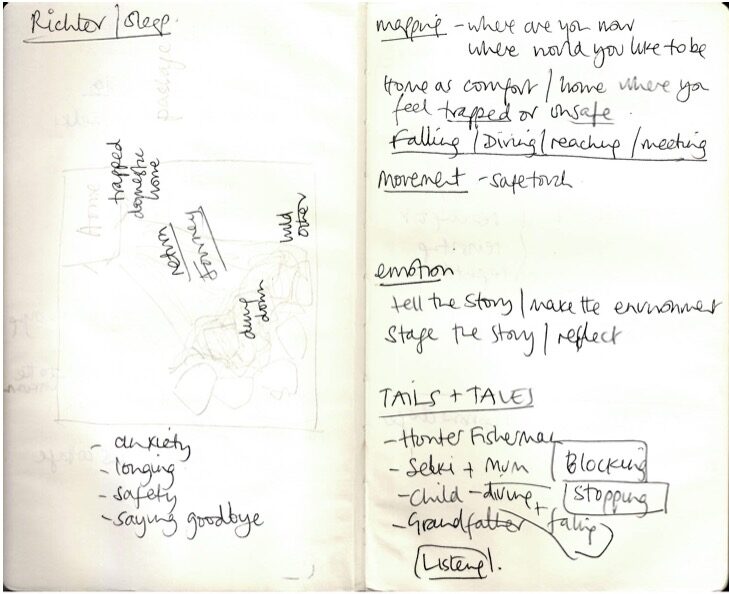 Richter / Sleep.
passage
Home
trapped
domestic
home
return
Journey
wild
other
diving
down
- anxiety
- longing
- safety
- saying goodbye
mapping - where are you now
where would you like to be
Home as comfort / home where you
feel trapped or unsafe.
Falling / Diving / reaching / meeting
Movement - safe touch
emotion
tell the story / make the environment
Stage the story / reflect
TAILS + TALES
- Hunter Fisherman
- Selki + Mum Blocking
- Child - diving + Stopping
- Grandfather falling
Listening.